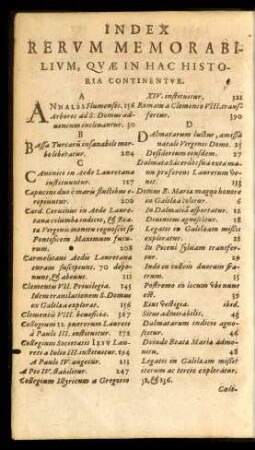 INDEX
RERVM MEMORABI-
LIVM, QVÆ IN HAC HISTO-
RIA CONTINENTVR.
A
ANNALES Flumenses. 156
Arbores ad S. Domus ad-
uentum inclinantur. 30
B
Bassa Turcarũ insanabili mor-
bo liberatur. 204
C
Canonici in Aede Lauretana
instituuntur. 127
Capucini duo è maris fluctibus e-
ripiuntur.
Card. Ceruinus in Aede Laure-
tana columba indice, & Bea-
ta Virginis monitu cognoscit se
Pontificem Maximum futu-
rum. 208
Carmelitani Aedis Lauretana
curam suscipiunt. 70 depo-
nunt, & abeunt.
Clementis VII. Priuilegia. 145
Idem translationem S. Domus
ex Galilaa explorat. 156
Clementis VIII. beneficia. 367
Collegium 12. puerorum Laureti
à Paulo III. instituitur. 172
Collegium Societatis IESV Lau-
reti à Iulio III. instituitur. 194
A Paulo IV. augetur. 213
A Pio IV. stabilitur. 247
Collegium Illyricum a Gregorio
XIV. instituitur. 322
Romam a Clemente VIII. trans-
fertur. 390
D
Dalmatarum luctus, amissa
natalis Virginis Domo. 25
Desiderium eiusdem. 27
Dalmata Sacerdos sua exta ma-
nu praeferens Lauretum Ve-
nit. 133
Domus B. Maria magno honore
in Galilaa colitur. 6
In Dalmatiã asportatur. 12
Dominis agnoscitur. 16
Legatis in Galilaam missis
exploratur.
In Piceni syluam transfer-
tur. 29
Inde in collem duorum fra-
trum.
Postremo in locum vbi nunc
est.
Eius vestigia. ibid.
Situs admirabilis. 43
Dalmatarum indicio agno-
scitur. 46
Deinde Beata Maria admo-
nitu. 48
Legatis in Galilaam missis
iterum ac tertio exploratur.
52. & 156.
Colle-